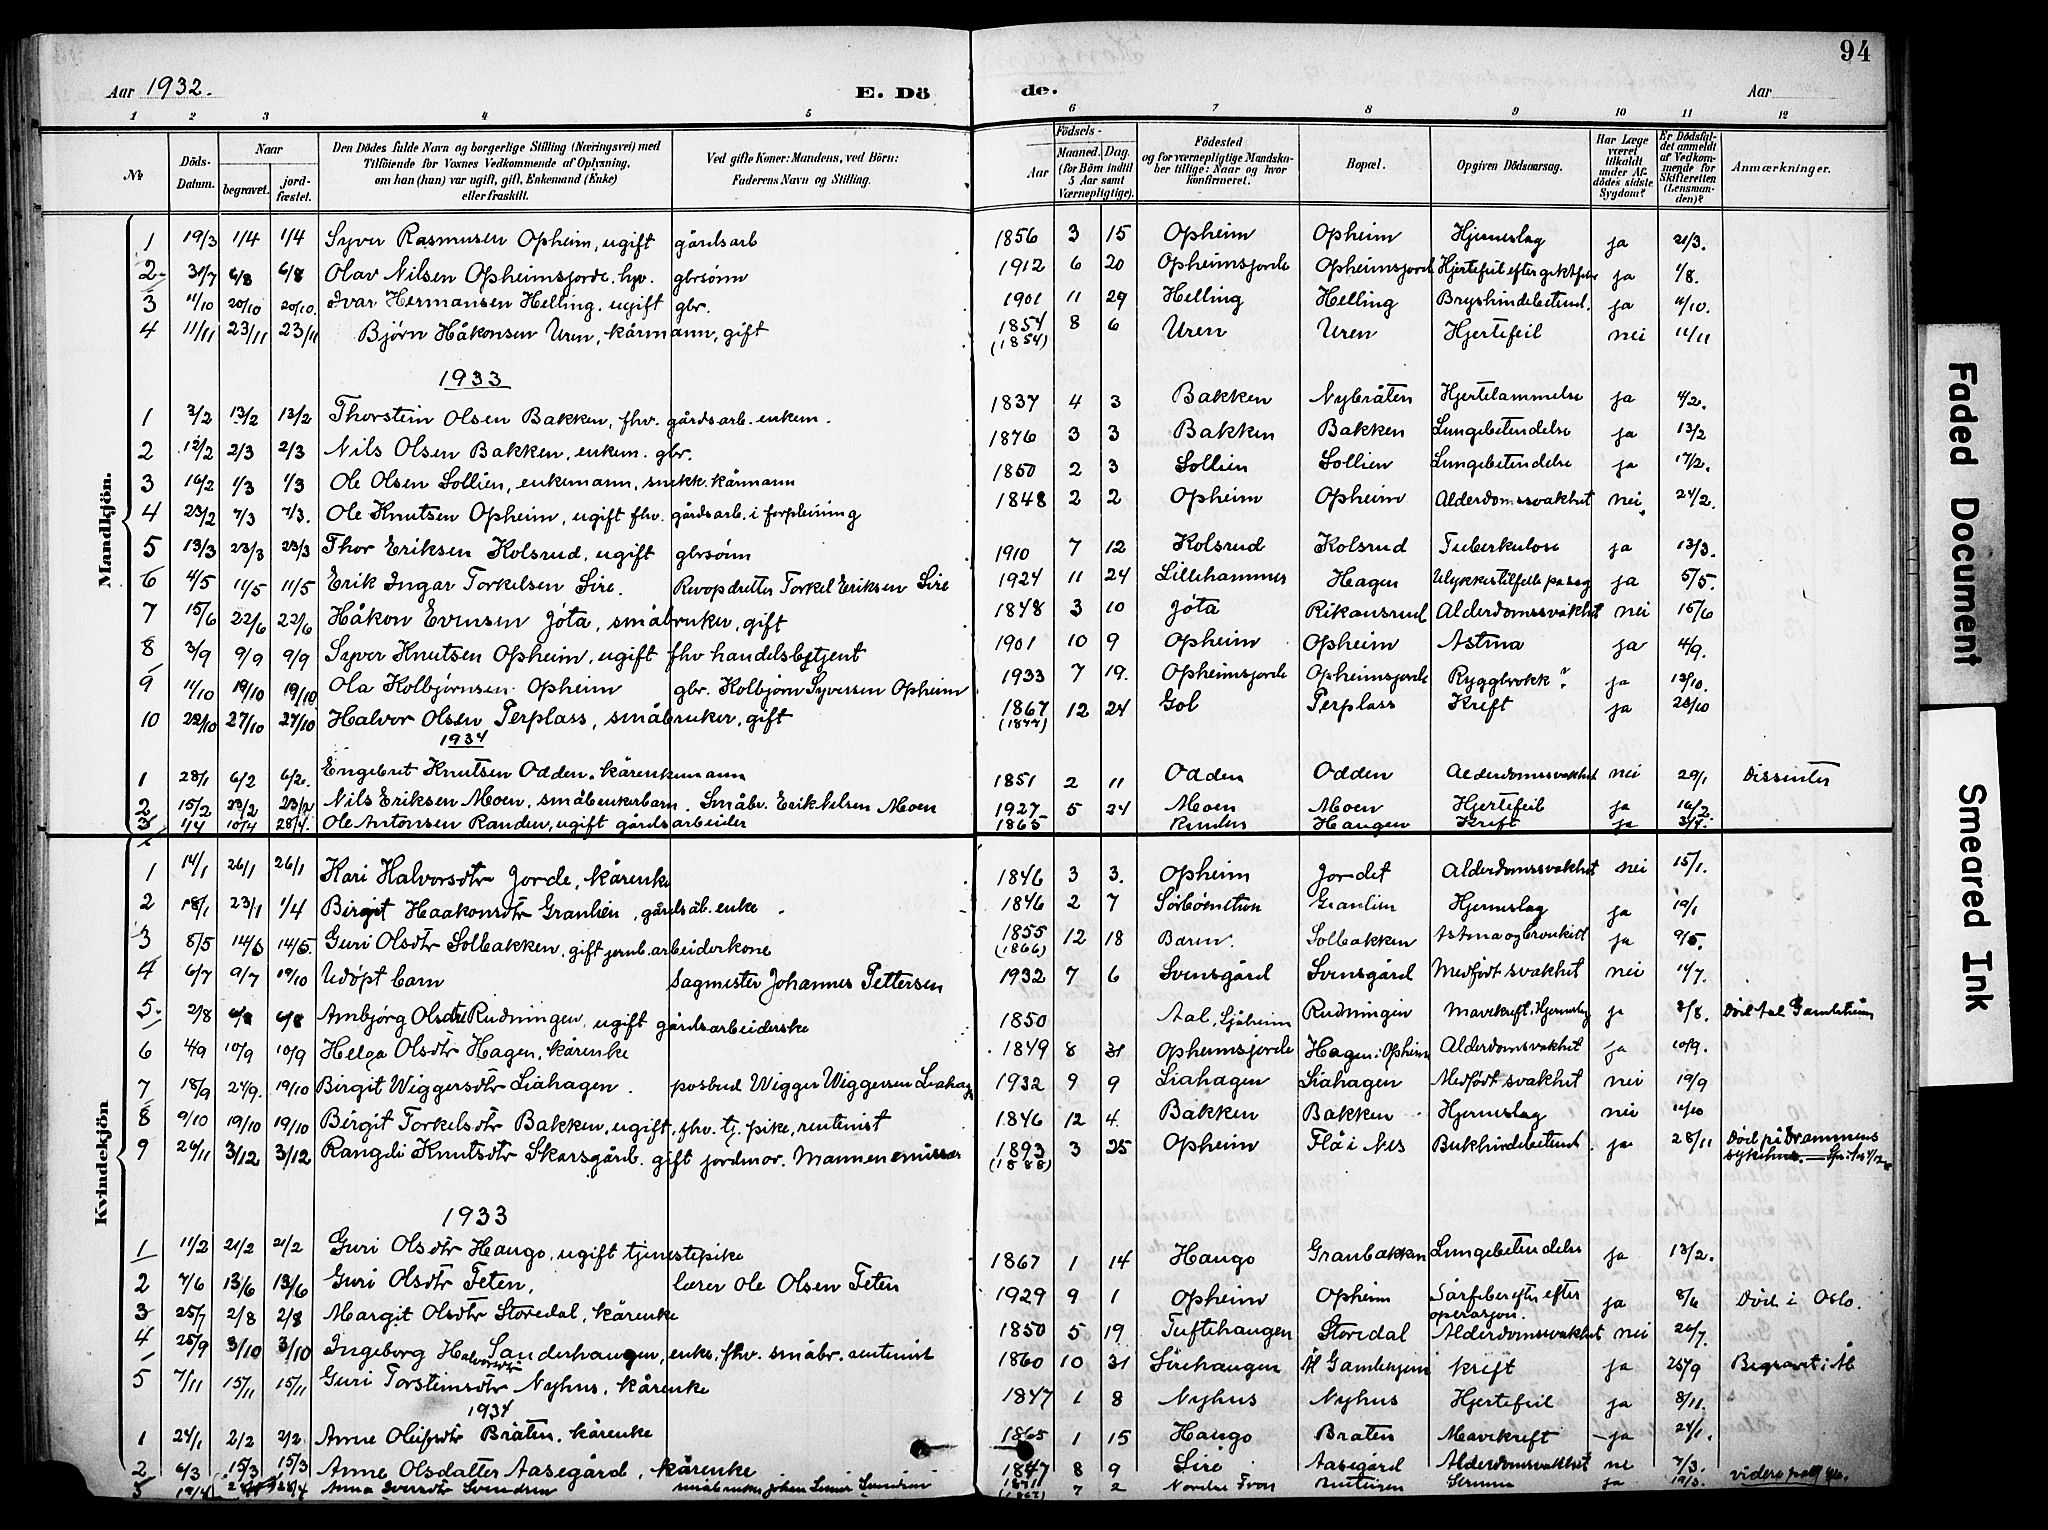 94
Aar 1932.
E. Dö de.
Aar
1 2 3 4 5 6 7 8 9 10 11 12
No
Döds-Datum.
Naar
begravet.
jord-fæstet.
Den Dödes fulde Navn og borgerlige Stilling (Næringsvei) med Tilföiende for Voxnes Vedkommende af Oplysning, om han (hun) var ugift, gift, Enkemand (Enke) eller fraskilt.
Ved gifte Koner: Mandens, ved Börn: Faderens Navn og Stilling.
Födsels-
Aar
Maaned. Dag.
(for Börn indtil 5 Aar samt Værnepligtige).
Födested og for værnepligtige Mandskaber tillige: Naar og hvor konfirmeret.
Bopæl.
Opgiven Dödsaarsag.
Har Læge været tilkaldt under Afdödes sidste Sygdom?
Er Dödsfaldet anmeldt af Vedkommende for Skifteretten (Lensmanden)?
Anmærkninger.
Mandkjön.
1 19/3 1/4 1/4 Syver Rasmusen Opheim, ugift gårdsarb 1856 3 15 Opheim Opheim Hjerneslag ja 21/3.
2 31/7 6/8 6/8 Olav Nilsen Opheimsjorde. gbrsönn 1912 6 20 Opheimsjorde Opheimsjord Hjertefeil efter ja 1/8.
3 11/10 20/10 20/10. Ivar Hermansen Helling, ugift gbr. 1901 11 29 Helling Helling ja 11/10.
4 11/11 23/11 23/11 Bjørn Håkonsen Uren, kårmann, gift 1854 (1854) 8 6 Uren Uren Hjertefeil nei 11/11
1933
1 3/2 13/2 13/2 Thorstein Olsen Bakken, fhv. gårdsarb. enkem. 1837 4 3 Bakken Nybråten Hjertelammelse ja 4/2.
2 12/2 2/3 2/3 Nils Olsen Bakken, enkem. gbr. 1876 3 3 Bakken Bakken Lungebetendelse ja 13/2
3 16/2 1/3 1/3 Ole Olsen Sollien, enkemann, snekk. kårmann 1850 2 3 Sollien Sollien Lungebetendelse ja 17/2.
4 23/2 7/3 7/3. Ole Knutsen Opheim, ugift fhv. gårdsarb. i forpleining 1848 2 2 Opheim Opheim Alderdomssvakhet nei 24/2.
5 13/3 23/3 23/3 Thor Eriksen Kolsrud, ugift gbrsönn 1910 7 12 Kolsrud Kolsrud Tuberkulose ja 13/3.
6 4/5 11/5 11/5 Erik Ingar Torkelsen Sire. Revopdretter Torkel Eriksen Sire 1924 11 24 Lillehammer Hagen Ulykkestilfelle på sag ja 5/5.
7 15/6 22/6 22/6 Håkon Evensen Jöta, småbruker, gift 1848 3 10 Jöta Rikansrud Alderdomssvakhet nei 15/6
8 3/9 9/9 9/9 Syver Knutsen Opheim, ugift fhv handelsbetjent 1901 10 9 Opheim Opheim Astma ja 4/9.
9 11/10 19/10 19/10 Ola Kolbjørnsen Opheim gbr. Kolbjørn Syversen Opheim 1933 7 19. Opheimsjorde Opheimsjorde Ryggbrokk? ja 13/10.
10 22/10 27/10 27/10 Halvor Olsen Perplass, småbruker, gift 1867 (1877) 12 24 Gol Perplass Kreft ja 23/10
1934
1 28/1 6/2 6/2. Engebret Knutsen Odden. kårenkemann 1851 2 11 Odden Odden Alderdomssvakhet nei 29/1 Dissenter
2 15/2 23/2 23/2 Nils Eriksen Moen, småbrukerbarn. Småbr. Erik Nilsen Moen 1927 5 24 Moen Moen Hjertefeil ja 16/2
3 1/4 10/4 28/4. Ole Antonsen Randen, ugift gårdsarbeider 1865 Randen Haugen Kreft ja 3/4.
Kvindekjön
1 14/1 26/1 26/1 Kari Halvorsdtr Jorde, kårenke 1846 3 3. Opheim Jordet Alderdomssvakhet nei 15/1.
2 18/1 23/1 1/4 Birgit Haakonsdtr Granlien, enke 1846 2 7 Granlien Hjerneslag ja 19/1
3 8/5 14/5 14/5. Guri Olsdtr Solbakken, gift jernb.arbeiderkone 1855 (1866) 12 18 Baren. Solbakken Astma og bronkitt ja 9/5.
4 6/7 9/7 19/10 Udöpt barn Sagmester Johannes Pettersen 1932 7 6 Svensgård Svensgård Medfödt svakhet nei 14/7.
5 2/8 6/8 6/8 Ambjörg Olsdtr Rudningen, ugift gårdsarbeiderske 1850 Aal, Rudningen Mavekreft, Hjerneslag ja 3/8.
6 4/9 10/9 10/9 Helga Olsdtr Hagen, kårenke 1849 8 31 Opheimsjorde Hagen i Opheim Alderdomsvakhet ja 10/9.
7 18/9 24/9. 19/10 Birgit Wiggersdtr Liahagen. posbud Wigger Wiggersen Liahag 1932 9 9 Liahagen Liahagen Medfödt svakhet nei 19/9
8 9/10 19/10 19/10 Birgit Torkelsdtr Bakken, ugift, fhv. tj. pike, rentenist 1846 12 4. Bakken Bakken Hjerneslag nei 11/10
9 26/11 3/12 3/12 Rangdi Knutsdtr Skarsgård. gift jordmor. Mannen emissær 1893 (1888) 3 25 Opheim Flå i Nes Bukhindebetend ja 28/11 Död på Drammens sykehus.
1933
1 11/2 21/2 21/2 Guri Olsdtr Haugo, ugift tjenestepike 1867 1 14 Haugo Granbakken Lungebetendelse ja 13/2.
2 7/6 13/6 13/6 Guri Olsdtr Feten, lærer Ole Olsen Feten 1929 9 1 Opheim Opheim Sårfeber efter operasjon. ja 8/6 Död i Oslo.
3 25/7 2/8 2/8 Margit Olsdtr Storedal, kårenke 1850 5 19 Tuftehaugen Storedal Alderdomssvakhet nei 26/7
4 25/9 3/10 3/10 Ingeborg Halvorsdtr Sanderhaugen, enke. fhv. småbr. rentenist 1860 10 31 Sirehaugen Ål Gamlehjem kreft ja 25/9 Begravet i Ål
5 7/11 15/11 15/11 Guri Torsteinsdtr Nyhus, kårenke 1847 1 8 Nyhus Nyhus Hjertefeil ja 8/11.
1934
1 24/1 2/2 2/2 Anne Bråten, kårenke 1865 1 15 Haugo Bråten Mavekreft ja 24/1.
2 6/3 15/3 15/3 Anne Olsdatter Aasegård, kårenke 1847 8 9 Sire Aasegård Alderdomsvakhet nei 7/3.
3 19/4 28/4 Anna Iversdtr Svendsen 1871 (1867) 7 2 Nordre Fron Struma ja 19/3.
Faded Document
Smeared Ink